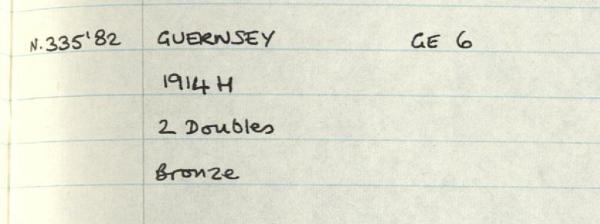 N.335'82 GUERNSEY GE 6
1914 H
2 Doubles
Bronze